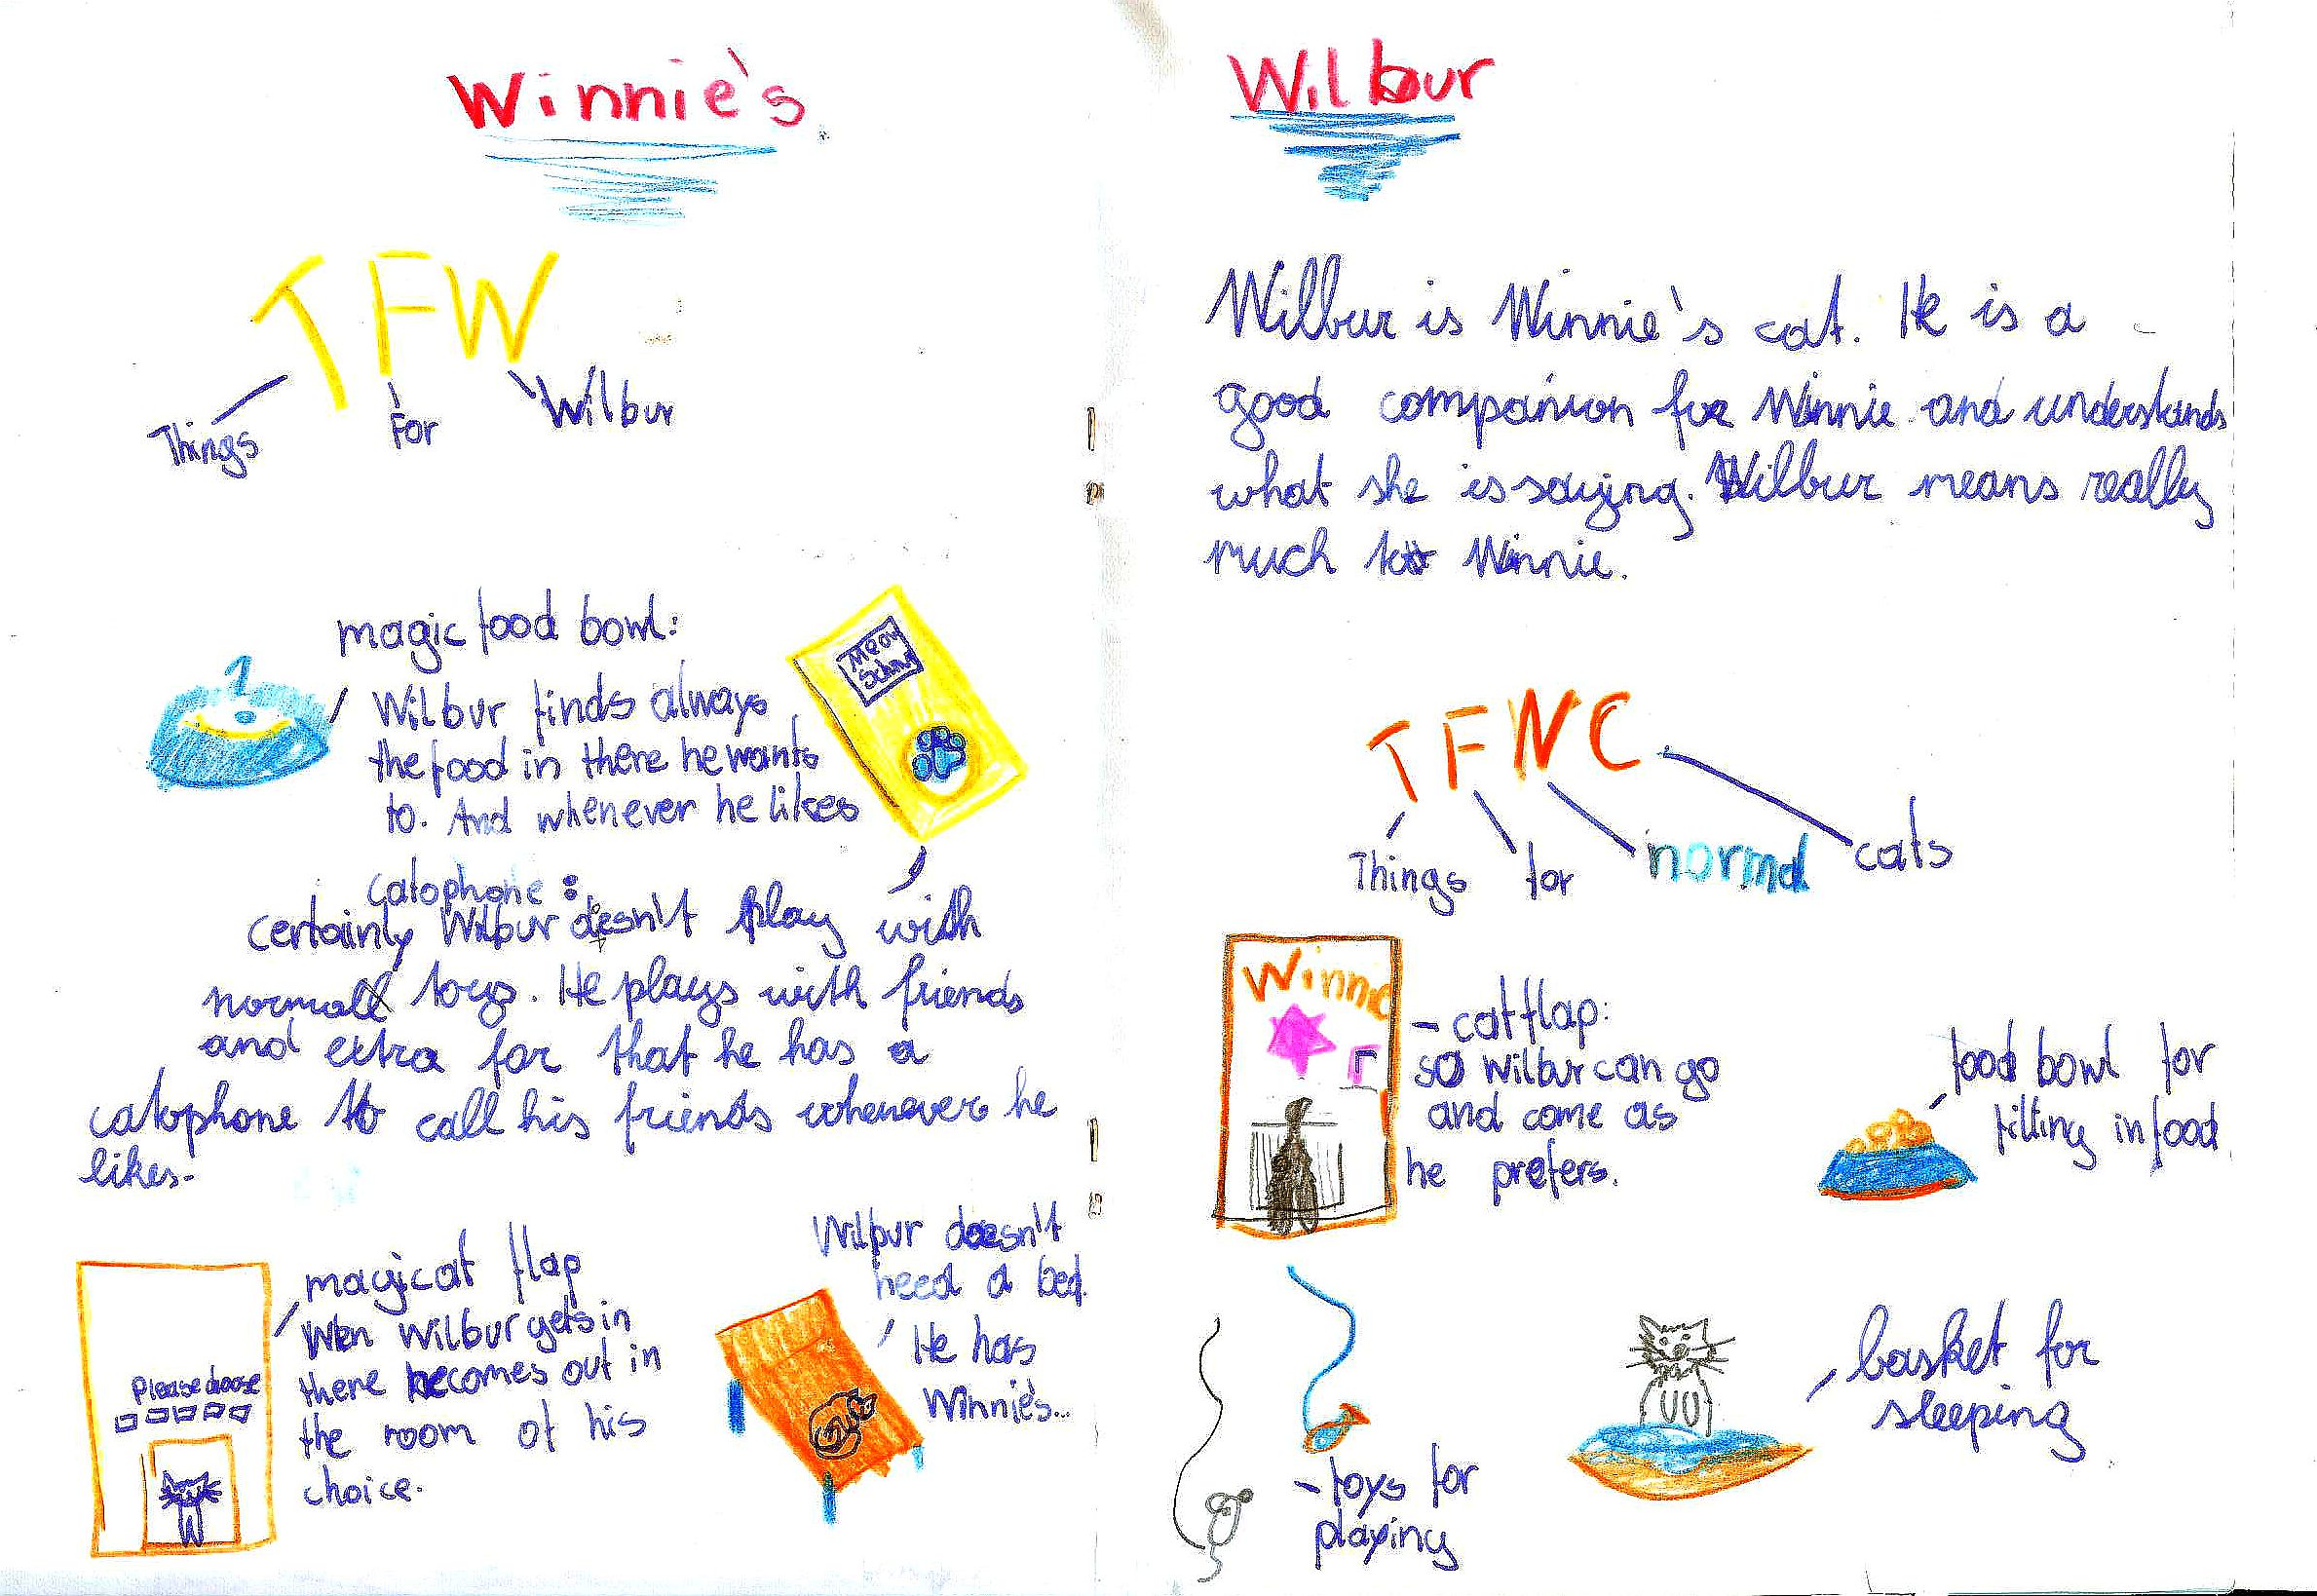 Winnie's
TFW
Things
For
Wilbur
magic food bowl:
Wilbur finds always
the food in there he wants
to. And whenever he likes
Meow
catophone:
certainly Wilbur doesn't play with
normal toys. He plays with friends
and extra for that he has a
catophone to call his friends whenever he
likes.
magicat flap
Wen Wilbur gets in
there hecomes out in
the room of his
choice.
Please choose
Wilbur doesn't
need a bed.
He has
Winnie's...
Wilbur
Wilbur is Winnie's cat. He is a
good companion for Winnie and understands
what she is saying. Wilbur means really
much to Winnie.
TFNC
Things
for
normal
cats
Winnie
- catflap:
so Wilbur can go
and come as
he prefers.
food bowl for
filling in food
- toys for
playing
basket for
sleeping